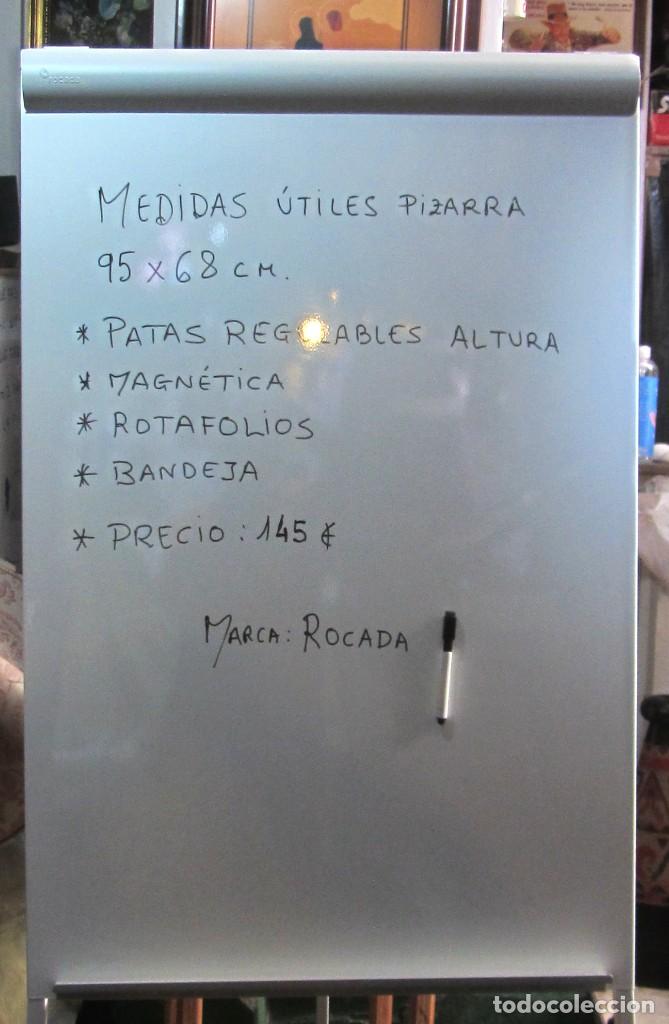 MEDIDAS ÚTILES PIZARRA
95 x 68 CM.
* PATAS REGULABLES ALTURA
* MAGNÉTICA
* ROTAFOLIOS
* BANDEJA
* PRECIO: 145 €
MARCA: ROCADA
todocoleccion